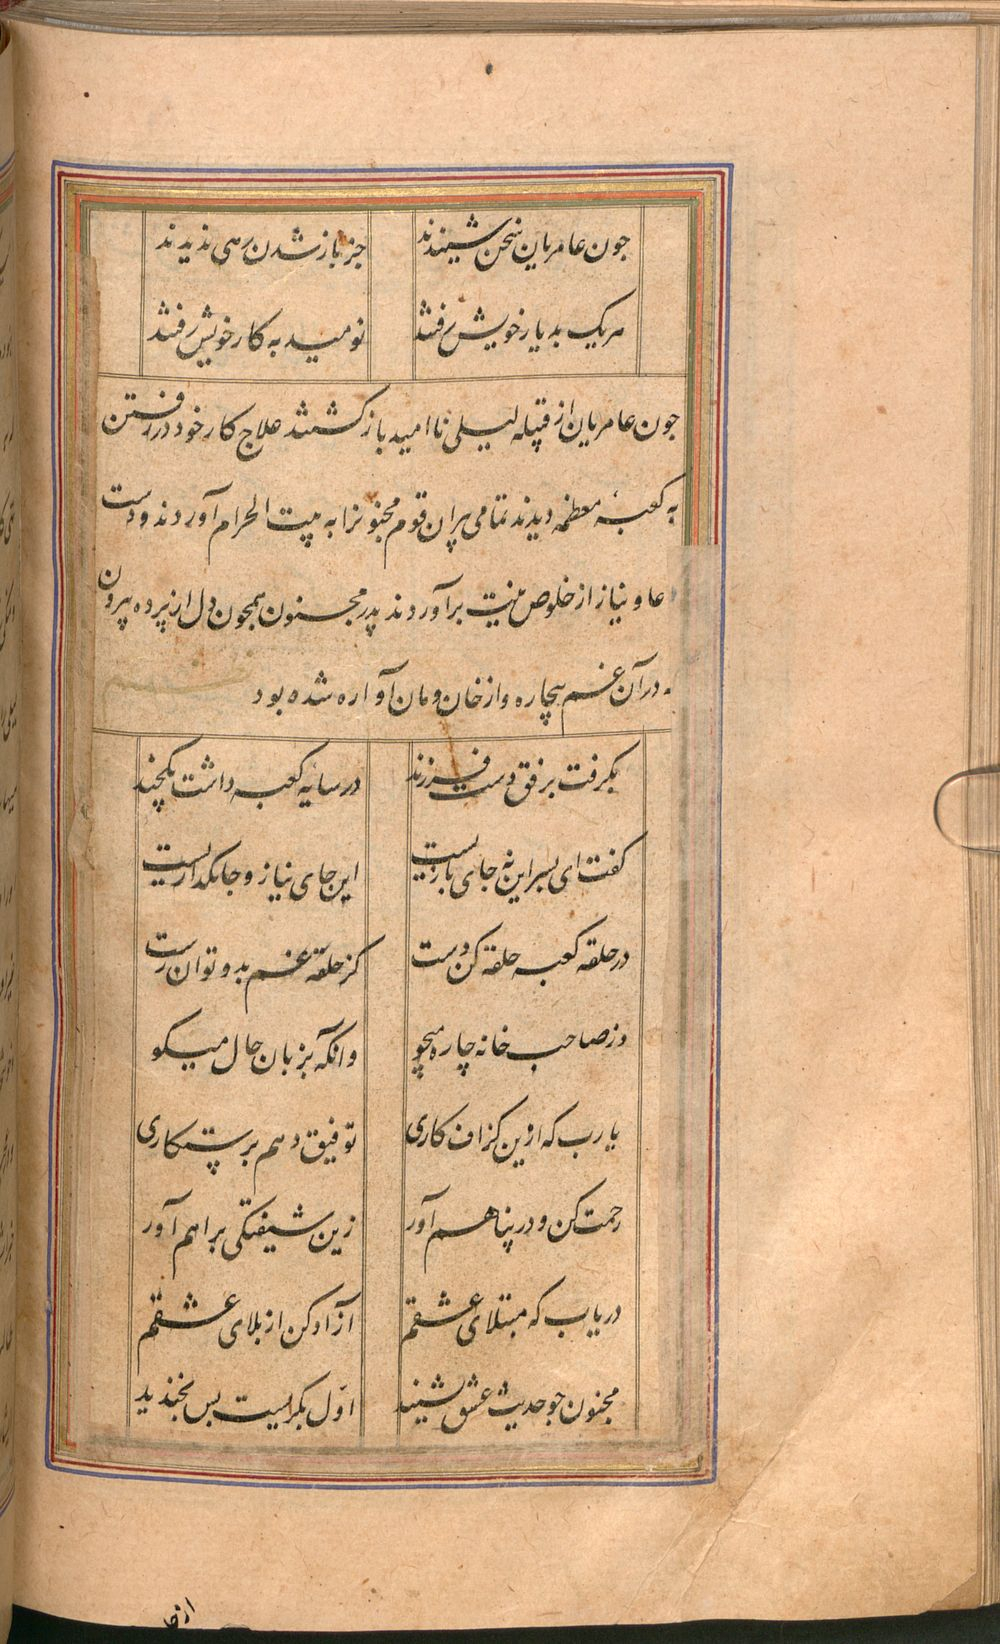 جون عامریان سخن شنیدند جز باز شدن رهی ندیدند
هریک بدیار خویش رفتند نومید به کار خویش رفتند
جون عامریان از قبیله لیلی نا امید باز کشتند علاج کار خود در رفتن
به کعبهٔ معظمه دیدند تمامی پیران قوم مجنونرا به بیت الحرام آوردند و دست
عا و نیاز از خلوص نیت برآوردند پدر مجنون همچون دل از پرده بیرون
در آن غم بیچاره و از خان و مان آواره شده بود
بکرفت برفق دست فرزند در سایه کعبه داشت یکچند
کفت ای پسر این نه جای بازیست این جای نیاز و جانکدازیست
در حلقه کعبه حلقه کن دست کز حلقه غم بدو توان رست
وز صاحب خانه چاره میجو وانکه بزبان حال میکو
یا رب که ازین کزاف کاری توفیق دهم برستکاری
رحمت کن و در پناهم آور زین شیفتکی براهم آور
دریاب که مبتلای عشقم آزاد کن از بلای عشقم
مجنون جو حدیث عشق بشنید اوّل بکریست پس بخندید